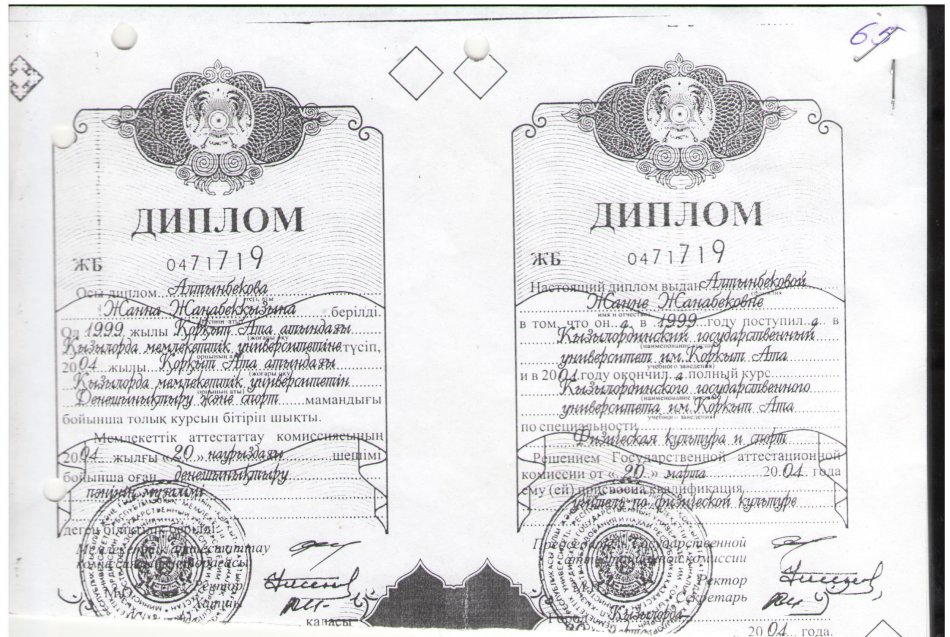 65
ДИПЛОМ
ЖБ 0471719
Осы диплом Алтынбекова
Жанна Жаңабекқызына берілді.
Ол 1999 жылы Қорқыт Ата атындағы
Қызылорда мемлекеттік университетіне түсіп,
2004 жылы Қорқыт Ата атындағы
Қызылорда мемлекеттік университетін
Денешынықтыру және спорт мамандығы
бойынша толық курсын бітіріп шықты.
Мемлекеттік аттестаттау комиссиясының
2004 жылғы «20» наурыздағы шешімі
бойынша оған денешынықтыру
пәнінің мұғалімі
деген біліктілік берілді.
Мемлекеттік аттестаттау
комиссиясының төрағасы
Ректор
Хатшы
қаласы
ДИПЛОМ
ЖБ 0471719
Настоящий диплом выдан Алтынбековой
Жанне Жанабековне
в том, что он а в 1999 году поступил а в
Кызылординский государственный
университет им. Коркыт Ата
и в 2004 году окончил а полный курс
Кызылординского государственного
университета им. Коркыт Ата
по специальности
Физическая культура и спорт
Решением Государственной аттестационной
комиссии от «20» марта 2004 года
ему (ей) присвоена квалификация
учитель по физической культуре
Председатель Государственной
аттестационной комиссии
Ректор
Секретарь
Город Кызылорда
2004 года.